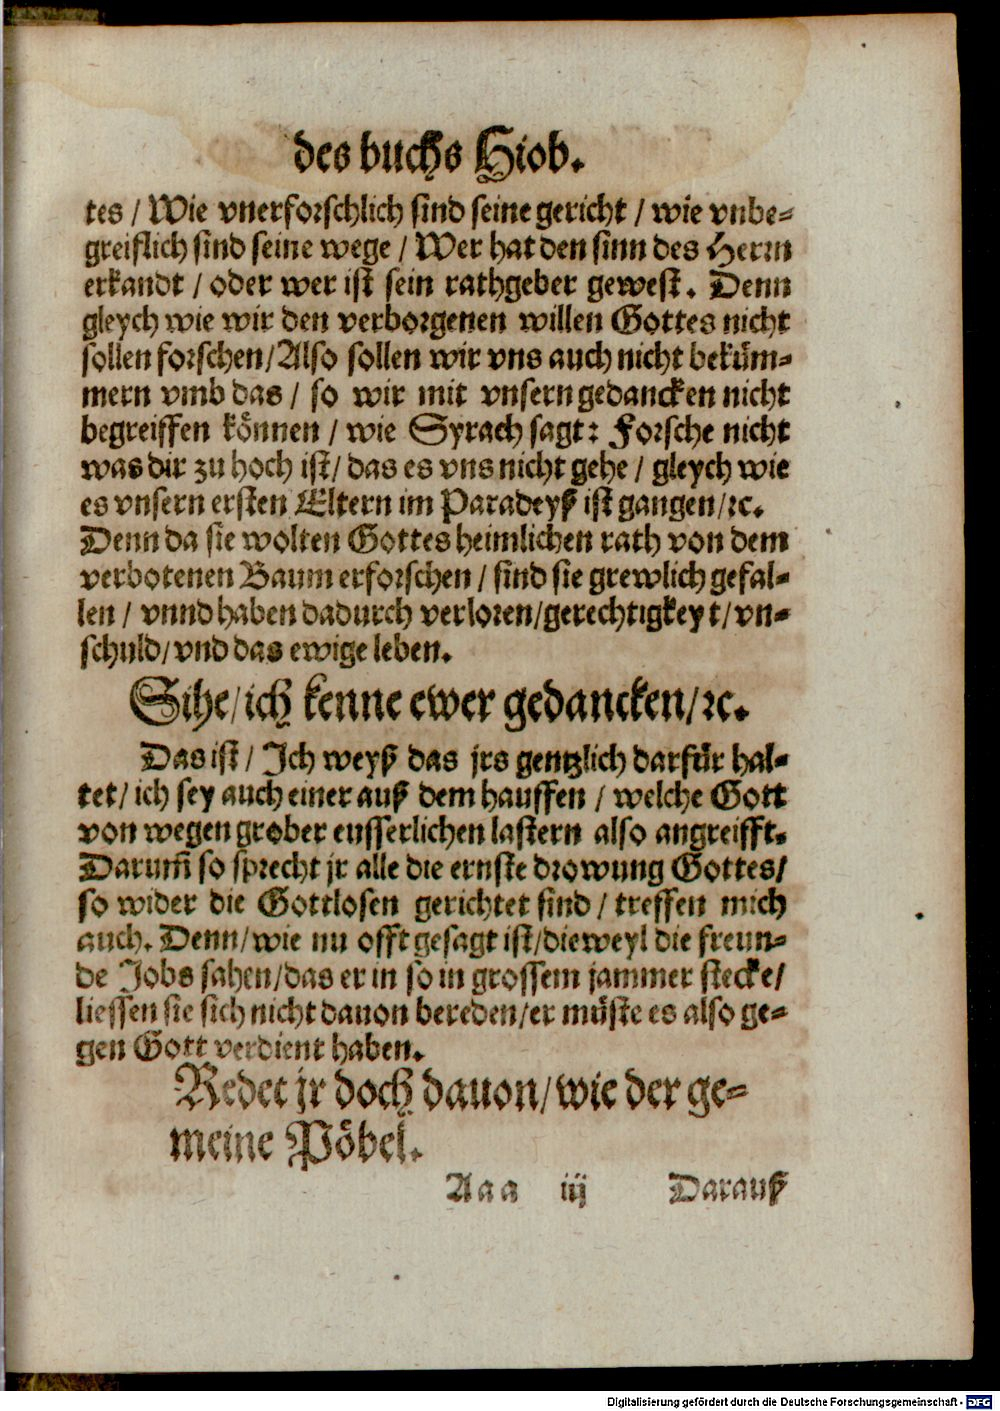 des buchs Hiob.
tes / Wie vnerforschlich sind seine gericht / wie vnbe-
greiflich sind seine wege / Wer hat den sinn des Herrn
erkandt / oder wer ist sein rathgeber gewest. Denn
gleych wie wir den verborgenen willen Gottes nicht
sollen forschen/Also sollen wir vns auch nicht beküm-
mern vmb das / so wir mit vnsern gedancken nicht
begreiffen können / wie Syrach sagt: Forsche nicht
was dir zu hoch ist/ das es vns nicht gehe / gleych wie
es vnsern ersten Eltern im Paradeyß ist gangen/ꝛc.
Denn da sie wolten Gottes heimlichen rath von dem
verbotenen Baum erforschen / sind sie grewlich gefal-
len / vnnd haben dadurch verloren/gerechtigkeyt/vn-
schuld/vnd das ewige leben.
Sihe/ich kenne ewer gedancken/ꝛc.
Das ist / Ich weyß das jrs gentzlich darfür hal-
tet/ ich sey auch einer auß dem hauffen / welche Gott
von wegen grober eusserlichen lastern also angreifft.
Darum̃ so sprecht jr alle die ernste drowung Gottes/
so wider die Gottlosen gerichtet sind / treffen mich
auch. Denn/wie nu offt gesagt ist/dieweyl die freun-
de Jobs sahen/das er in so in grossem jammer stecke/
liessen sie sich nicht dauon bereden/er müste es also ge-
gen Gott verdient haben.
Redet jr doch dauon/wie der ge-
meine Pöbel.
Aaa iij Darauß
Digitalisierung gefördert durch die Deutsche Forschungsgemeinschaft - DFG